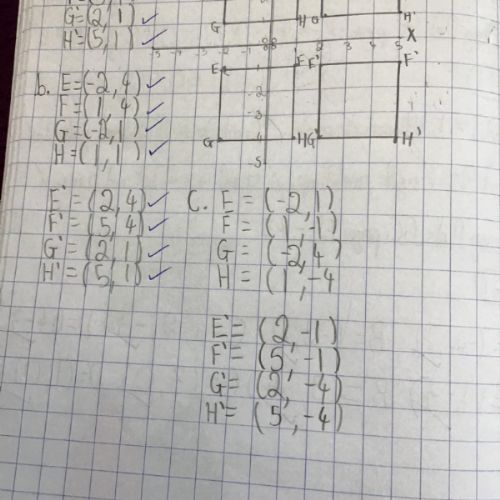 G' = (2, 1) ✓
H' = (5, 1) ✓
b. E = (-2, 4) ✓
F = (1, 4) ✓
G = (-2, 1) ✓
H = (1, 1) ✓
E' = (2, 4) ✓
F' = (5, 4) ✓
G' = (2, 1) ✓
H' = (5, 1) ✓
G H G' H'
X
2 3 4 5
E E F' F'
-2
-3
4
-5
G H G' H'
C. E = (-2, 1)
F = (1, -1)
G = (-2, 4)
H = (1, -4
E' = (2, -1)
F' = (5, -1)
G' = (2, -4)
H' = (5, -4)